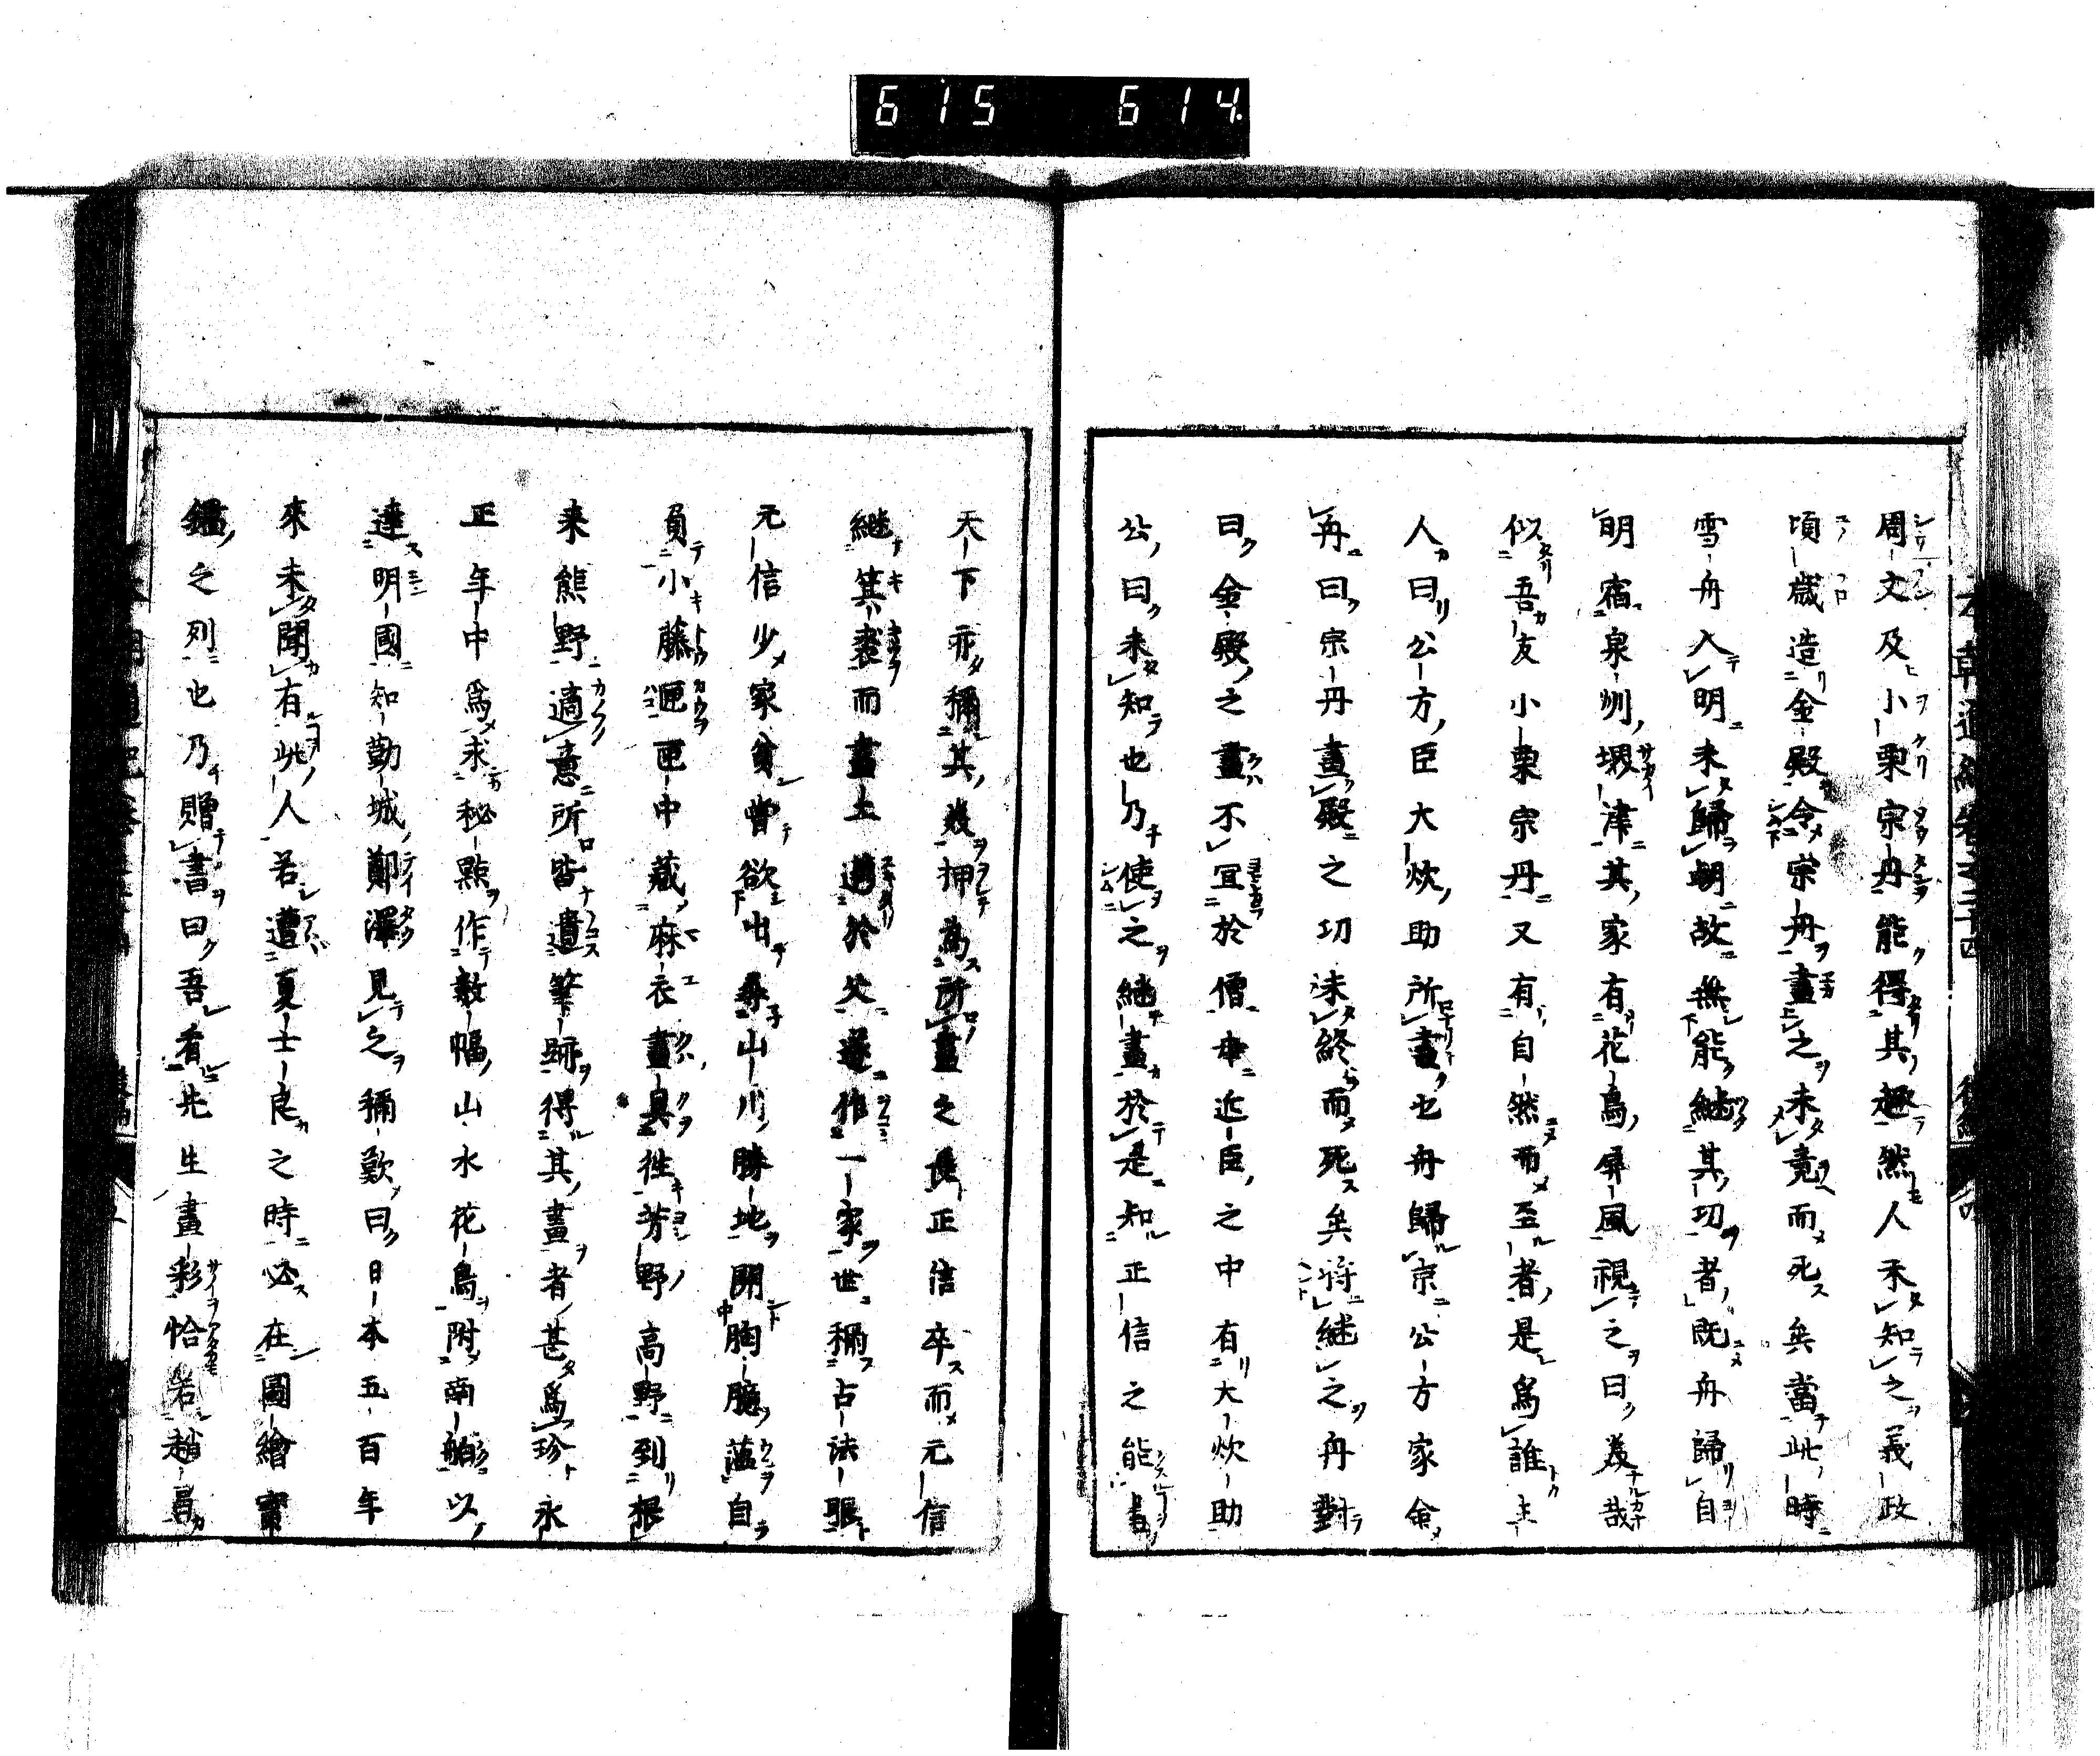 615 614
周文及小栗宗丹能得其趣然人未知之義政
頃歳造金殿令宗丹畫之未竟而死矣當此時
雪舟入明未歸朝故無能継其功者既舟歸自
明宿泉州堺津其家有花鳥屏風視之曰美哉
似吾友小栗宗丹又有自然而至者是爲誰主
人曰公方臣大炊助所畫也舟歸京公方家命
舟曰宗丹畫殿之功未終而死矣将継之舟對
曰金殿之畫不宜於僧中近臣之中有大炊助
公曰未知也乃使之継畫於是知正信之能畫
天下亦稱其美押為所畫之長正信卒而元信
継箕裘而畫土邁於父遂作一家世稱古法張
元信少家貧曽欲出尋山川勝地開胸臆薀自
負小藤匣匣中蔵麻衣畫具徃芳野高野到根
来熊野適意所皆遺筆跡得其畫者甚爲珍永
正年中爲求秘點作數幅山水花鳥附南舶以
達明國知勤城鄭澤見之稱歎曰日本五百年
來未聞有此人若遭夏士良之時必在圖繪寳
鑑之列也乃贈書曰吾看先生畫彩恰若趙昌